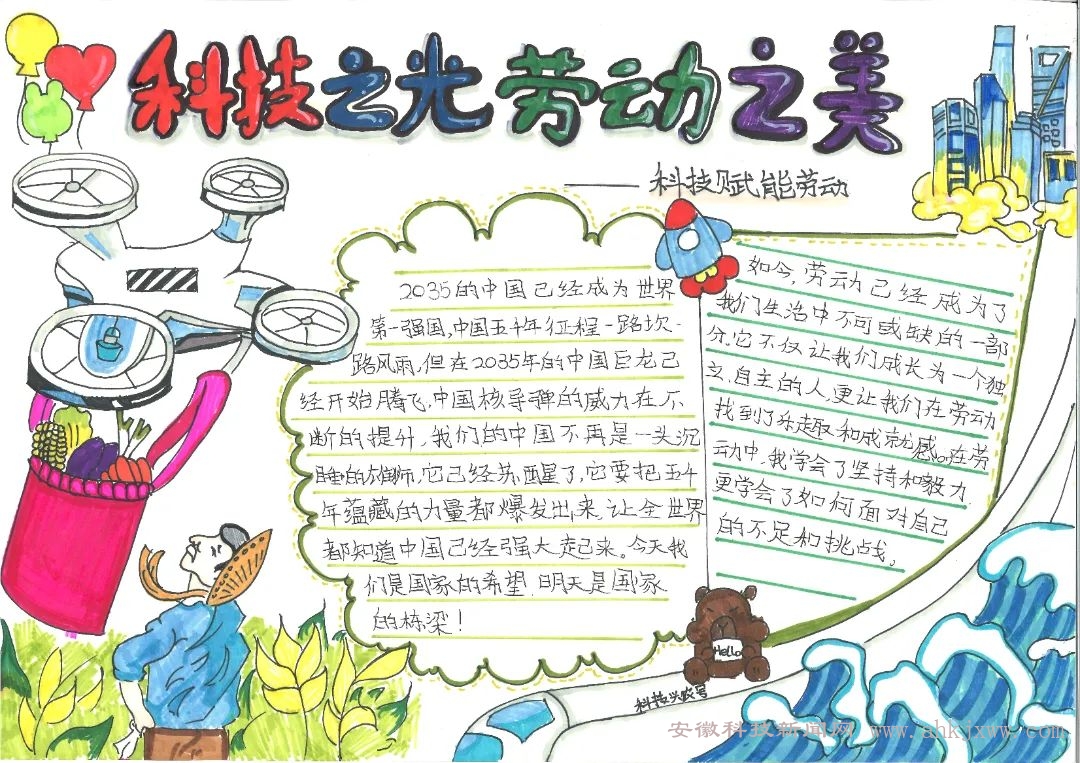 科技之光 劳动之美
——科技赋能劳动
2035的中国已经成为世界
第一强国,中国五千年征程一路坎-
路风雨,但在2035年的中国巨龙已
经开始腾飞,中国核导弹的威力在不
断的提升,我们的中国不再是一头沉
睡的雄狮,它已经苏醒了,它要把五千
年蕴藏的力量都爆发出来,让全世界
都知道中国已经强大起来。今天我
们是国家的希望,明天是国家
的栋梁!
如今,劳动已经成为了
我们生活中不可或缺的一部
分,它不仅让我们成长为一个独
立、自主的人,更让我们在劳动
找到了乐趣和成就感。在劳
动中,我学会了坚持和毅力,
更学会了如何面对自己
的不足和挑战。
Hello
安徽科技新闻网 www.ahkjxww.com